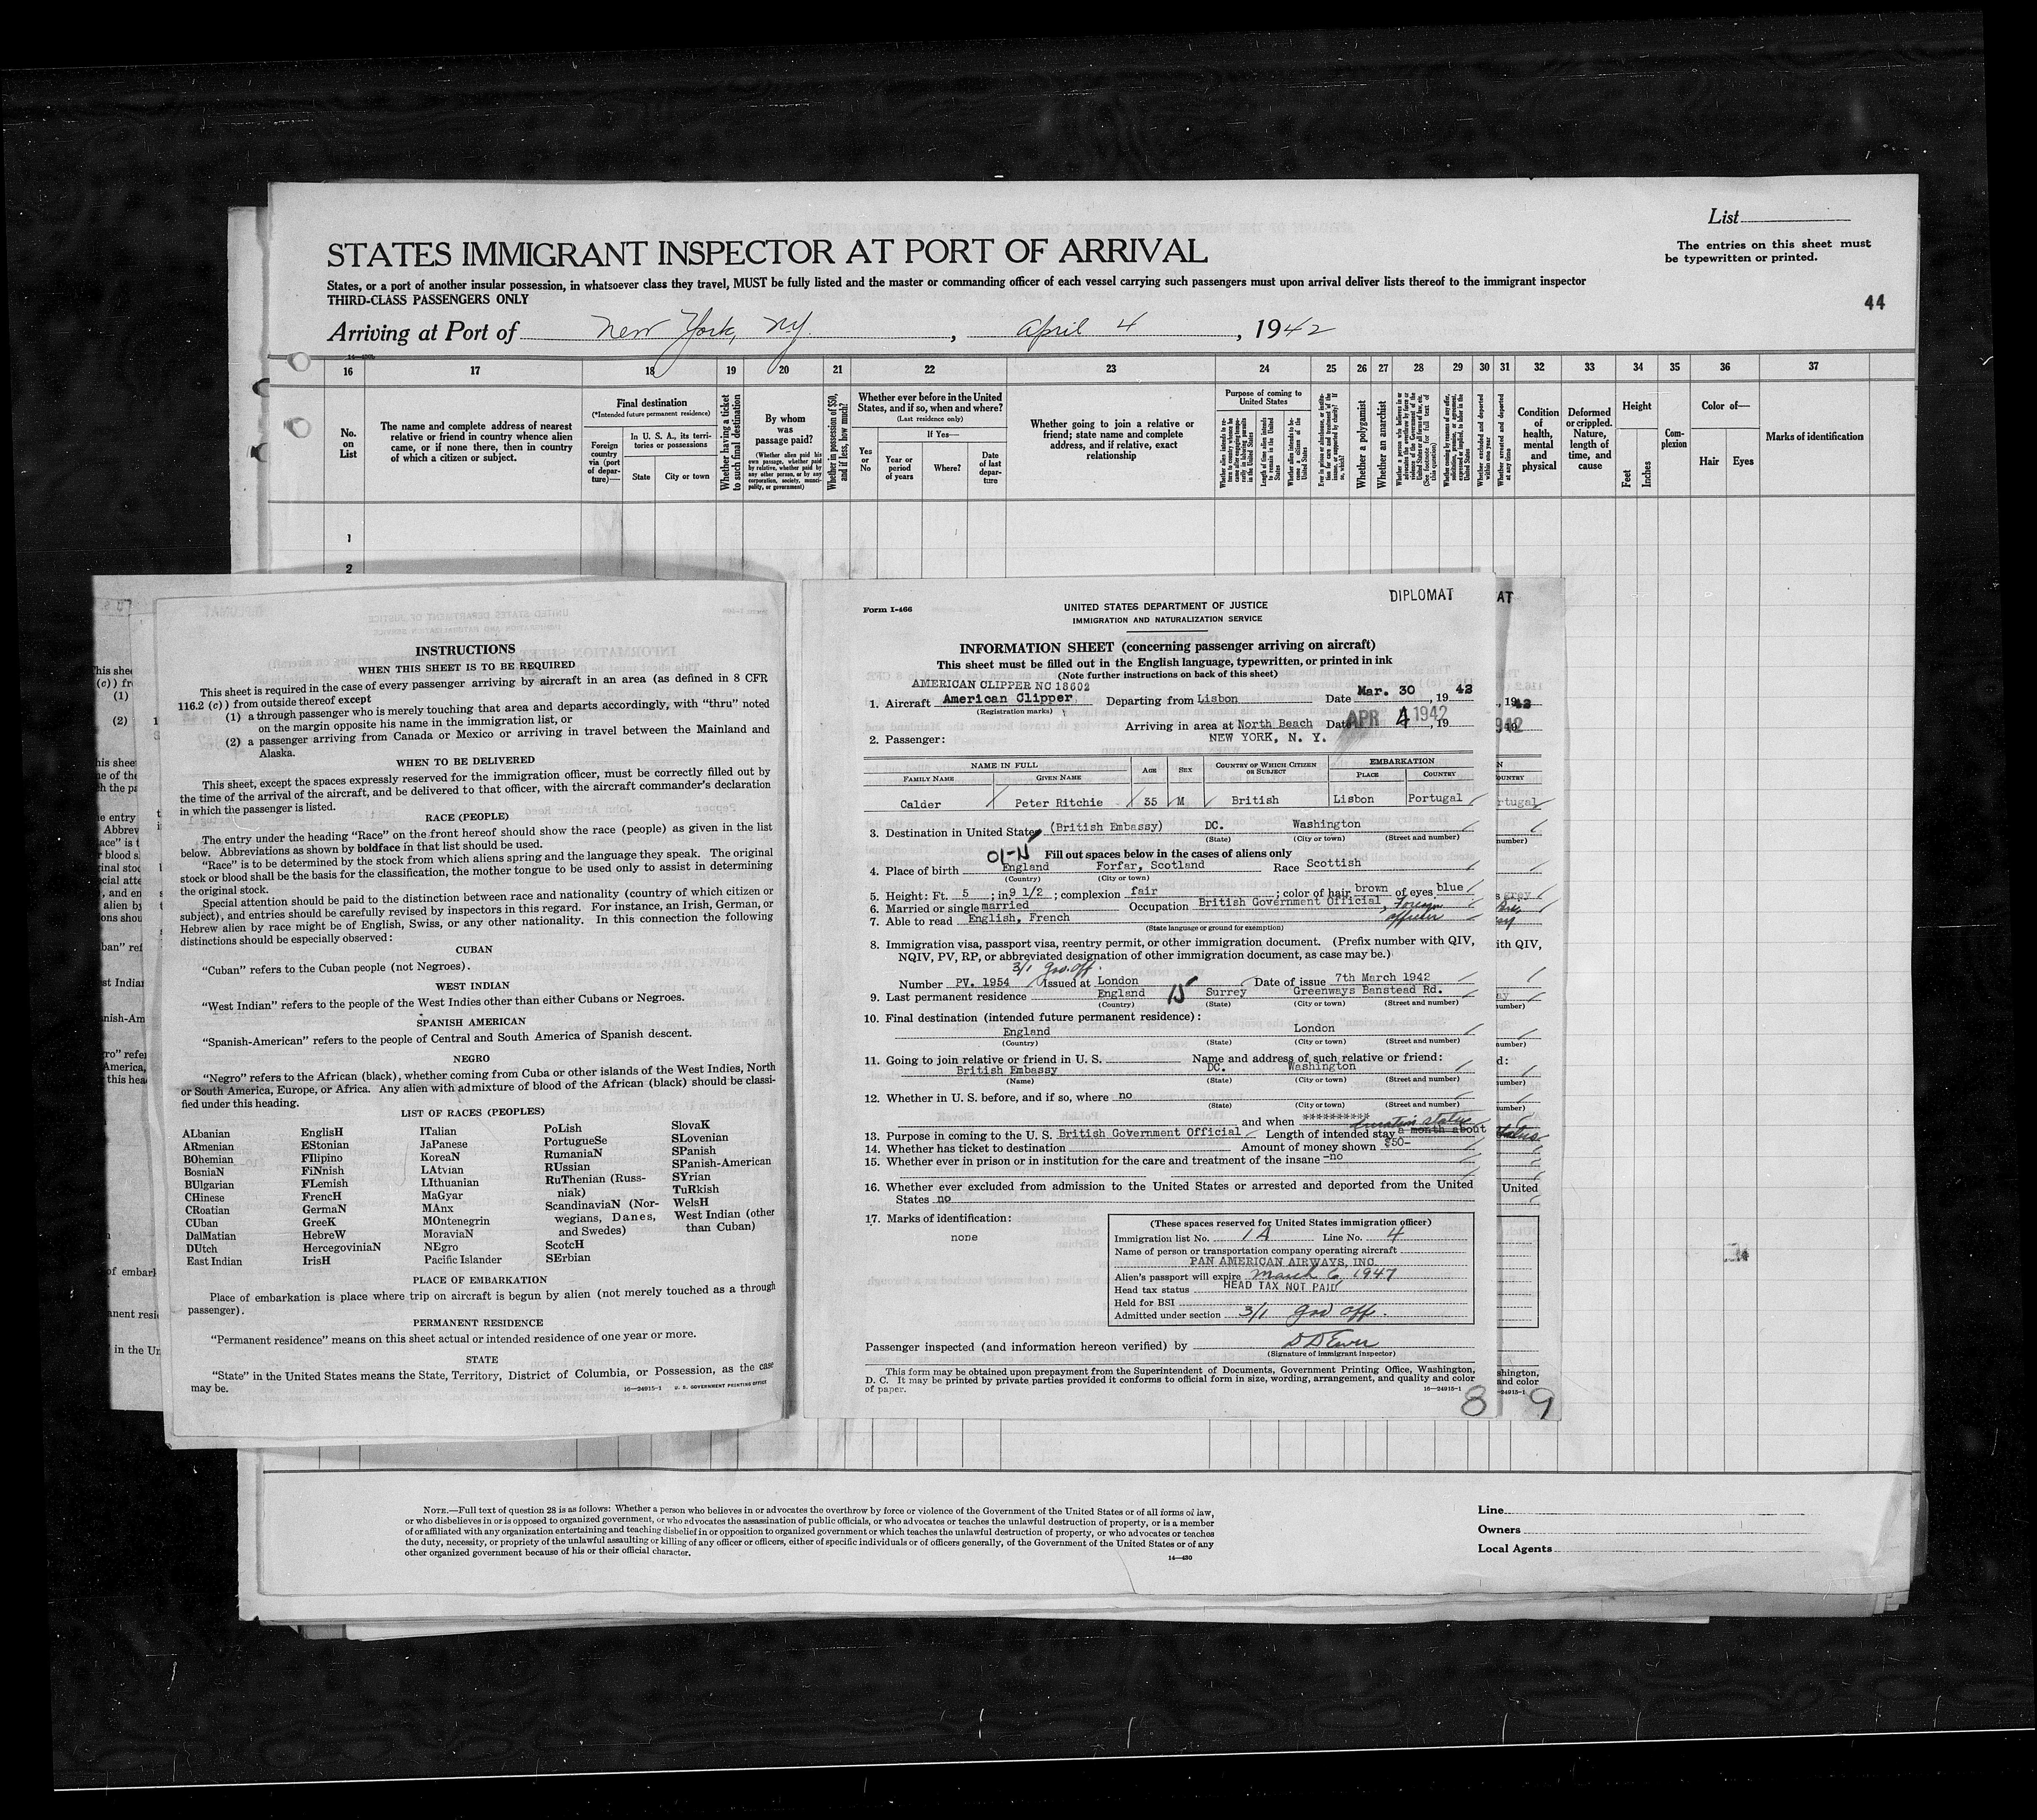 List
STATES IMMIGRANT INSPECTOR AT PORT OF ARRIVAL
The entries on this sheet must
be typewritten or printed.
States, or a port of another insular possession, in whatsoever class they travel, MUST be fully listed and the master or commanding officer of each vessel carrying such passengers must upon arrival deliver lists thereof to the immigrant inspector
THIRD-CLASS PASSENGERS ONLY
44
Arriving at Port of New York, N.Y., April 4, 1942
16 17 18 19 20 21 22 23 24 25 26 27 28 29 30 31 32 33 34 35 36 37
No. on List
The name and complete address of nearest relative or friend in country whence alien came, or if none there, then in country of which a citizen or subject.
Final destination
(*Intended future permanent residence)
Foreign country via (port of departure)—
In U. S. A., its territories or possessions
State City or town
Whether having a ticket to such final destination
By whom was passage paid?
(Whether alien paid his own passage, whether paid by relative, whether paid by any other person, or by any corporation, society, municipality, or government)
Whether in possession of $50, and if less, how much?
Whether ever before in the United States, and if so, when and where?
(Last residence only)
Yes or No
If Yes—
Year or period of years
Where?
Date of last departure
Whether going to join a relative or friend; state name and complete address, and if relative, exact relationship
Purpose of coming to United States
Whether a polygamist
Whether an anarchist
Condition of health, mental and physical
Deformed or crippled. Nature, length of time, and cause
Height
Feet Inches
Complexion
Color of—
Hair Eyes
Marks of identification
1
2
INSTRUCTIONS
WHEN THIS SHEET IS TO BE REQUIRED
This sheet is required in the case of every passenger arriving by aircraft in an area (as defined in 8 CFR
116.2 (c)) from outside thereof except
(1) a through passenger who is merely touching that area and departs accordingly, with "thru" noted
on the margin opposite his name in the immigration list, or
(2) a passenger arriving from Canada or Mexico or arriving in travel between the Mainland and
Alaska.
WHEN TO BE DELIVERED
This sheet, except the spaces expressly reserved for the immigration officer, must be correctly filled out by
the time of the arrival of the aircraft, and be delivered to that officer, with the aircraft commander's declaration
in which the passenger is listed.
RACE (PEOPLE)
The entry under the heading "Race" on the front hereof should show the race (people) as given in the list
below. Abbreviations as shown by boldface in that list should be used.
"Race" is to be determined by the stock from which aliens spring and the language they speak. The original
stock or blood shall be the basis for the classification, the mother tongue to be used only to assist in determining
the original stock.
Special attention should be paid to the distinction between race and nationality (country of which citizen or
subject), and entries should be carefully revised by inspectors in this regard. For instance, an Irish, German, or
Hebrew alien by race might be of English, Swiss, or any other nationality. In this connection the following
distinctions should be especially observed:
CUBAN
"Cuban" refers to the Cuban people (not Negroes).
WEST INDIAN
"West Indian" refers to the people of the West Indies other than either Cubans or Negroes.
SPANISH AMERICAN
"Spanish-American" refers to the people of Central and South America of Spanish descent.
NEGRO
"Negro" refers to the African (black), whether coming from Cuba or other islands of the West Indies, North
or South America, Europe, or Africa. Any alien with admixture of blood of the African (black) should be classi-
fied under this heading.
LIST OF RACES (PEOPLES)
ALbanian
ARmenian
BOhemian
BosniaN
BUlgarian
CHinese
CRoatian
CUban
DalMatian
DUtch
East Indian
EnglisH
EStonian
FIlipino
FiNnish
FLemish
FrencH
GermaN
GreeK
HebreW
HercegoviniaN
IrisH
ITalian
JaPanese
KoreaN
LAtvian
LIthuanian
MaGyar
MAnx
MOntenegrin
MoraviaN
NEgro
Pacific Islander
PoLish
PortugueSe
RumaniaN
RUssian
RuThenian (Russ-
niak)
ScandinaviaN (Nor-
wegians, Danes,
and Swedes)
ScotcH
SErbian
SlovaK
SLovenian
SPanish
SPanish-American
SYrian
TuRkish
WelsH
West Indian (other
than Cuban)
PLACE OF EMBARKATION
Place of embarkation is place where trip on aircraft is begun by alien (not merely touched as a through
passenger).
PERMANENT RESIDENCE
"Permanent residence" means on this sheet actual or intended residence of one year or more.
STATE
"State" in the United States means the State, Territory, District of Columbia, or Possession, as the case
may be.
16—24915-1 U. S. GOVERNMENT PRINTING OFFICE
Form I-466
UNITED STATES DEPARTMENT OF JUSTICE
IMMIGRATION AND NATURALIZATION SERVICE
DIPLOMAT
INFORMATION SHEET (concerning passenger arriving on aircraft)
This sheet must be filled out in the English language, typewritten, or printed in ink
(Note further instructions on back of this sheet)
AMERICAN CLIPPER NC 18602
1. Aircraft American Clipper Departing from Lisbon Date Mar. 30, 1942
(Registration marks)
Arriving in area at North Beach Date APR 4 1942, 19
NEW YORK, N. Y.
2. Passenger:
NAME IN FULL AGE SEX COUNTRY OF WHICH CITIZEN OR SUBJECT EMBARKATION
FAMILY NAME GIVEN NAME PLACE COUNTRY
Calder Peter Ritchie 35 M British Lisbon Portugal
3. Destination in United States (British Embassy) DC. Washington
(State) (City or town) (Street and number)
01-N Fill out spaces below in the cases of aliens only
4. Place of birth England Forfar, Scotland Race Scottish
(Country) (City or town)
5. Height: Ft. 5; in. 9 1/2; complexion fair; color of hair brown of eyes blue
6. Married or single married Occupation British Government Official, Foreign
7. Able to read English, French officer
(State language or ground for exemption)
8. Immigration visa, passport visa, reentry permit, or other immigration document. (Prefix number with QIV,
NQIV, PV, RP, or abbreviated designation of other immigration document, as case may be.)
3/1 gov. off.
Number PV. 1954 Issued at London Date of issue 7th March 1942
9. Last permanent residence England 15 Surrey Greenways Banstead Rd.
(Country) (State) (City or town) (Street and number)
10. Final destination (intended future permanent residence):
England London
(Country) (State) (City or town) (Street and number)
11. Going to join relative or friend in U. S. Name and address of such relative or friend:
British Embassy DC. Washington
(Name) (State) (City or town) (Street and number)
12. Whether in U. S. before, and if so, where no
(State) (City or town) (Street and number)
and when ********** duration status
13. Purpose in coming to the U. S. British Government Official Length of intended stay a month about
14. Whether has ticket to destination Amount of money shown $50-
15. Whether ever in prison or in institution for the care and treatment of the insane -no
16. Whether ever excluded from admission to the United States or arrested and deported from the United
States no
17. Marks of identification:
none
(These spaces reserved for United States immigration officer)
Immigration list No. 1A Line No. 4
Name of person or transportation company operating aircraft
PAN AMERICAN AIRWAYS, INC.
Alien's passport will expire March 6, 1947
Head tax status HEAD TAX NOT PAID
Held for BSI
Admitted under section 3/1 gov off.
Passenger inspected (and information hereon verified) by
(Signature of immigrant inspector)
This form may be obtained upon prepayment from the Superintendent of Documents, Government Printing Office, Washington,
D. C. It may be printed by private parties provided it conforms to official form in size, wording, arrangement, and quality and color
of paper.
16—24915-1
8 9
NOTE.—Full text of question 28 is as follows: Whether a person who believes in or advocates the overthrow by force or violence of the Government of the United States or of all forms of law,
or who disbelieves in or is opposed to organized government, or who advocates the assassination of public officials, or who advocates or teaches the unlawful destruction of property, or is a member
of or affiliated with any organization entertaining and teaching disbelief in or opposition to organized government or which teaches the unlawful destruction of property, or who advocates or teaches
the duty, necessity, or propriety of the unlawful assaulting or killing of any officer or officers, either of specific individuals or of officers generally, of the Government of the United States or of any
other organized government because of his or their official character.
14—430
Line
Owners
Local Agents